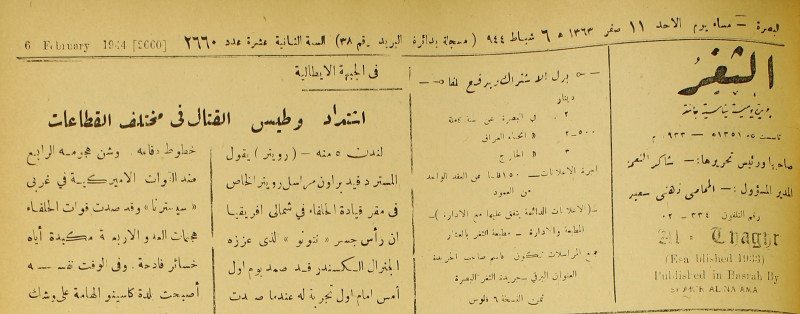 البصرة — مساء يوم الاحد ١١ صفر ١٣٦٣ ه ٦ شباط ٩٤٤ ( مسجلة بدائرة البريد رقم ٣٨) السنة الثانية عشرة عدد ٢٦٦٠
6 February 1944 [2660]
الثغر
جريدة يومية سياسية جامعة
تأسست ١٣٥١ ه — ٩٣٣ م
صاحبها ورئيس تحريرها: — شاكر النعمة
المدير المسؤول: — المحامي ذهني سعيد
رقم التلفون ٣٣٤ — ٠٢
Al - Thaghr
(Esablished 1933)
Published in Basrah By
SHAKIR AL NAAMA
بدل الاشتراك ويدفع سلفا
دينار
٢ . في البصرة عن سنة كاملة
٥٠٠ — ٢ « انحاء العراق
٣ « الخارج
اجرة الاعلانات — ١٥٠ فلسا عن العقد الواحد
من العمود
—( الاعلانات الدائمة يتفق عليها مع الادارة )—
المطبعة والادارة — مطبعة الثغر بالعشار
جميع المراسلات تكون باسم صاحب الجريدة
العنوان البرقي — جريدة الثغر البصرة
ثمن النسخة ٦ فلوس
في الجبهة الايطالية
اشتداد وطيس القتال في مختلف القطاعات
لندن ٥ منه — ( رويتر ) يقول
المستر دفيد براون مراسل رويتر الخاص
في مقر قيادة الحلفاء في شمالي افريقيا
ان رأس جسر « نتونو » الذي عززه
الجنرال اليكسندر قد صمد يوم اول
أمس امام اول تجربة له عندما صدت
خطوط دفاعه. وشن هجومه الرابع
ضد القوات الاميركية في غربي
« سيسترنا » وقد صدت قوات الحلفاء
هجمات العدو الاربعة مكبدة أياه
خسائر فادحة. وفي الوقت نفسه
أصبحت بلدة كاسينو الهامة على وشك